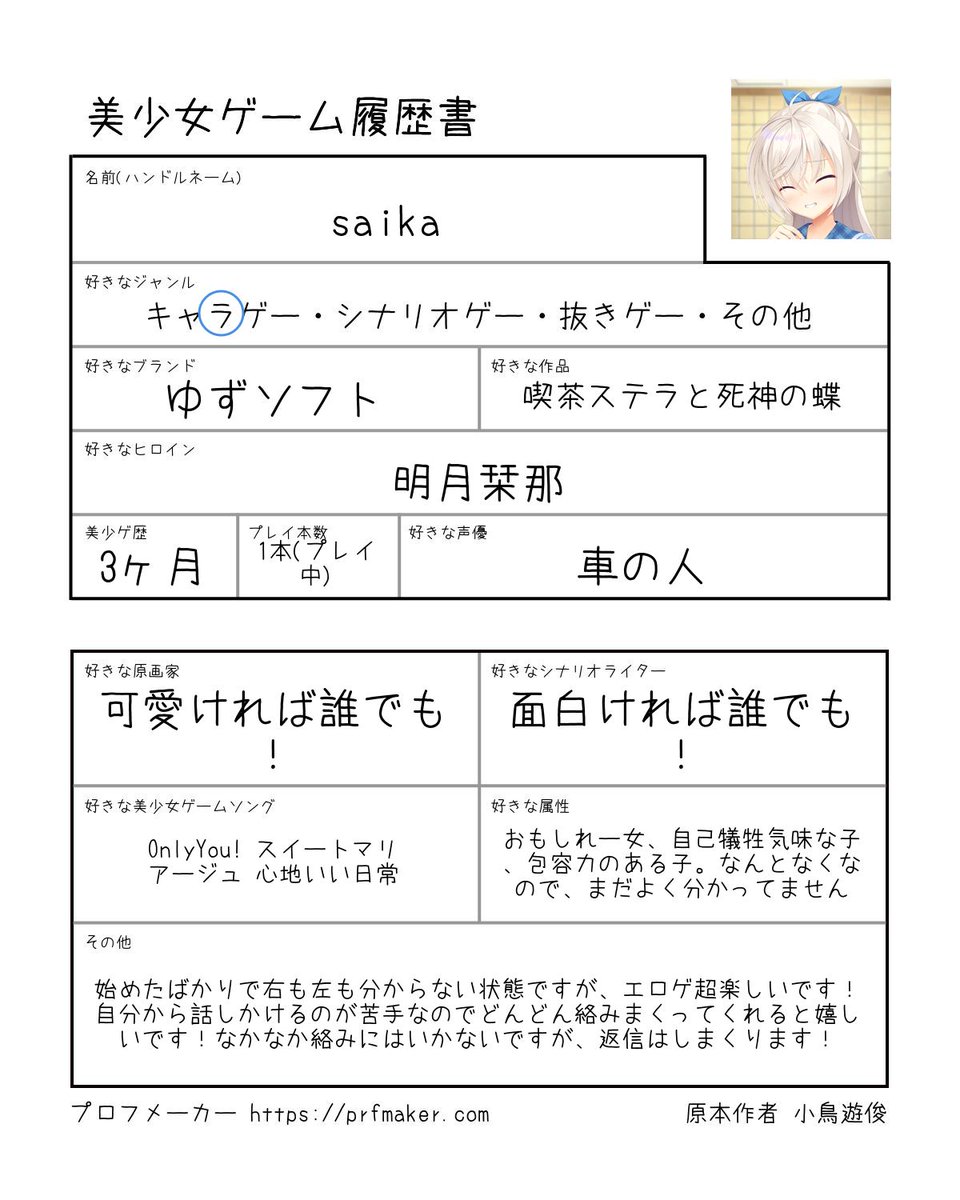 美少女ゲーム履歴書
名前(ハンドルネーム)
saika
好きなジャンル
キャラゲー・シナリオゲー・抜きゲー・その他
好きなブランド
ゆずソフト
好きな作品
喫茶ステラと死神の蝶
好きなヒロイン
明月栞那
美少ゲ歴
3ヶ月
プレイ本数
1本(プレイ
中)
好きな声優
車の人
好きな原画家
可愛ければ誰でも
!
好きなシナリオライター
面白ければ誰でも
!
好きな美少女ゲームソング
OnlyYou! スイートマリ
アージュ 心地いい日常
好きな属性
おもしれー女、自己犠牲気味な子
、包容力のある子。なんとなくな
ので、まだよく分かってません
その他
始めたばかりで右も左も分からない状態ですが、エロゲ超楽しいです!
自分から話しかけるのが苦手なのでどんどん絡みまくってくれると嬉し
いです!なかなか絡みにはいかないですが、返信はしまくります!
プロフメーカー https://prfmaker.com
原本作者 小鳥遊俊